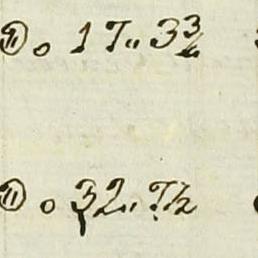 ⑪ 0 17" 3¾
⑪ 0 32" 7½